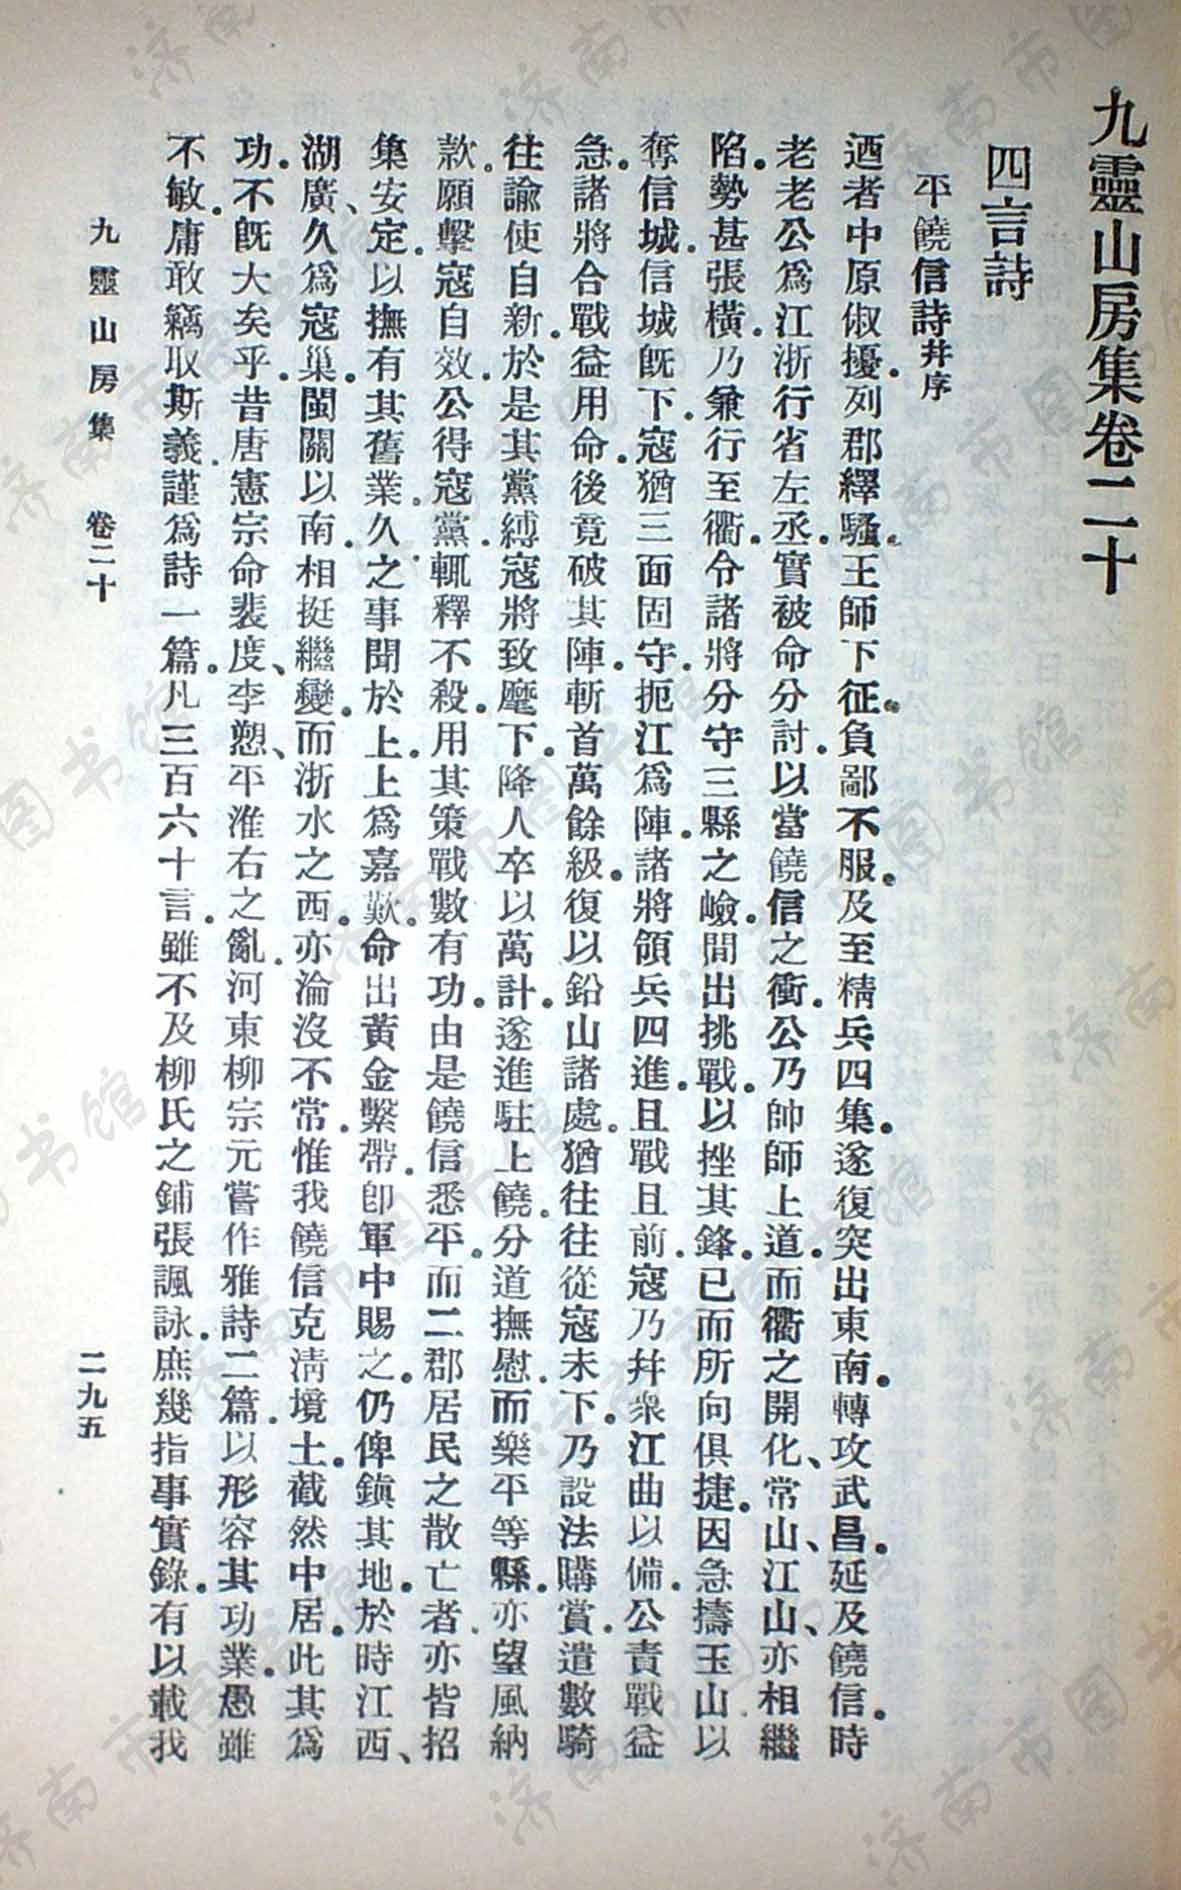 九靈山房集卷二十
四言詩
平饒信詩幷序
迺者中原俶擾。列郡繹騷。王師下征。負鄙不服。及至精兵四集。遂復突出東南。轉攻武昌。延及饒信。時
老老公爲江浙行省左丞。實被命分討。以當饒信之衝。公乃帥師上道。而衢之開化、常山、江山、亦相繼
陷。勢甚張橫。乃兼行至衢。令諸將分守三縣之嶮。間出挑戰。以挫其鋒。已而所向俱捷。因急擣玉山。以
奪信城。信城旣下。寇猶三面固守。扼江爲陣。諸將領兵四進。且戰且前。寇乃幷衆江曲以備。公責戰益
急。諸將合戰益用命。後竟破其陣。斬首萬餘級。復以鉛山諸處。猶往往從寇未下。乃設法購賞。遣數騎
往諭使自新。於是其黨縛寇將致麾下。降人卒以萬計。遂進駐上饒。分道撫慰。而樂平等縣。亦望風納
款。願擊寇自效。公得寇黨。輒釋不殺。用其策戰數有功。由是饒信悉平。而二郡居民之散亡者。亦皆招
集安定。以撫有其舊業。久之事聞於上。上爲嘉歎。命出黃金繫帶。卽軍中賜之。仍俾鎭其地。於時江西、
湖廣、久爲寇巢。閩關以南。相挺繼變。而浙水之西。亦淪沒不常。惟我饒信克淸境土。截然中居。此其爲
功。不旣大矣乎。昔唐憲宗命裴度、李愬、平淮右之亂。河東柳宗元嘗作雅詩二篇。以形容其功業。愚雖
不敏。庸敢竊取斯義。謹爲詩一篇。凡三百六十言。雖不及柳氏之鋪張諷詠。庶幾指事實錄。有以載我
九靈山房集 卷二十 二九五
济南市图书馆